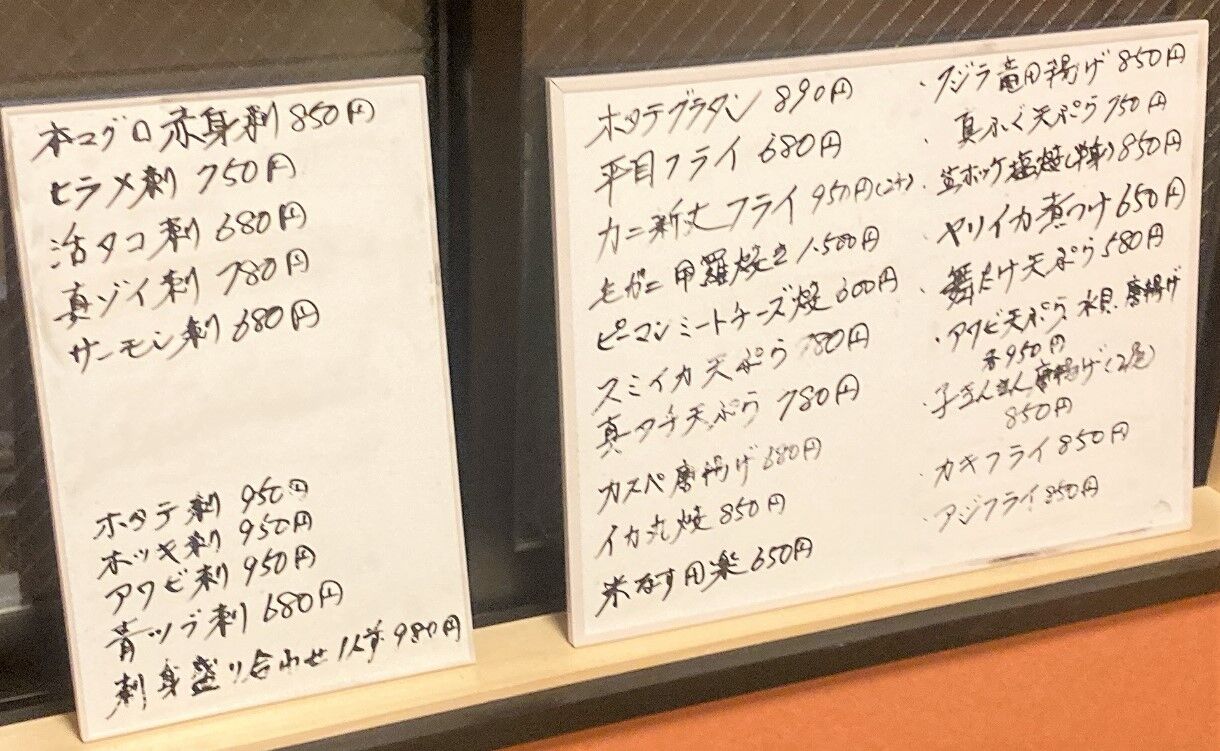 本マグロ赤身刺 850円
ヒラメ刺 750円
活タコ刺 680円
真ゾイ刺 780円
サーモン刺 680円
ホタテ刺 950円
ホッキ刺 950円
アワビ刺 950円
青ツブ刺 680円
刺身盛り合わせ 1人前 980円
ホタテグラタン 890円
平目フライ 680円
カニ新丈フライ 950円(2ケ)
毛ガニ甲羅焼き 1.500円
ピーマンミートチーズ焼 600円
スミイカ天ぷら 780円
真タチ天ぷら 780円
カスベ唐揚げ 680円
イカ丸焼 850円
米なす田楽 650円
・クジラ竜田揚げ 850円
・真ふぐ天ぷら 750円
・宗ホッケ塩焼(半身) 850円
・ヤリイカ煮つけ 650円
・舞たけ天ぷら 580円
・アワビ天ぷら、水貝、唐揚げ
各950円
・子きんきん唐揚げ(2尾)
850円
・カキフライ 850円
・アジフライ 850円